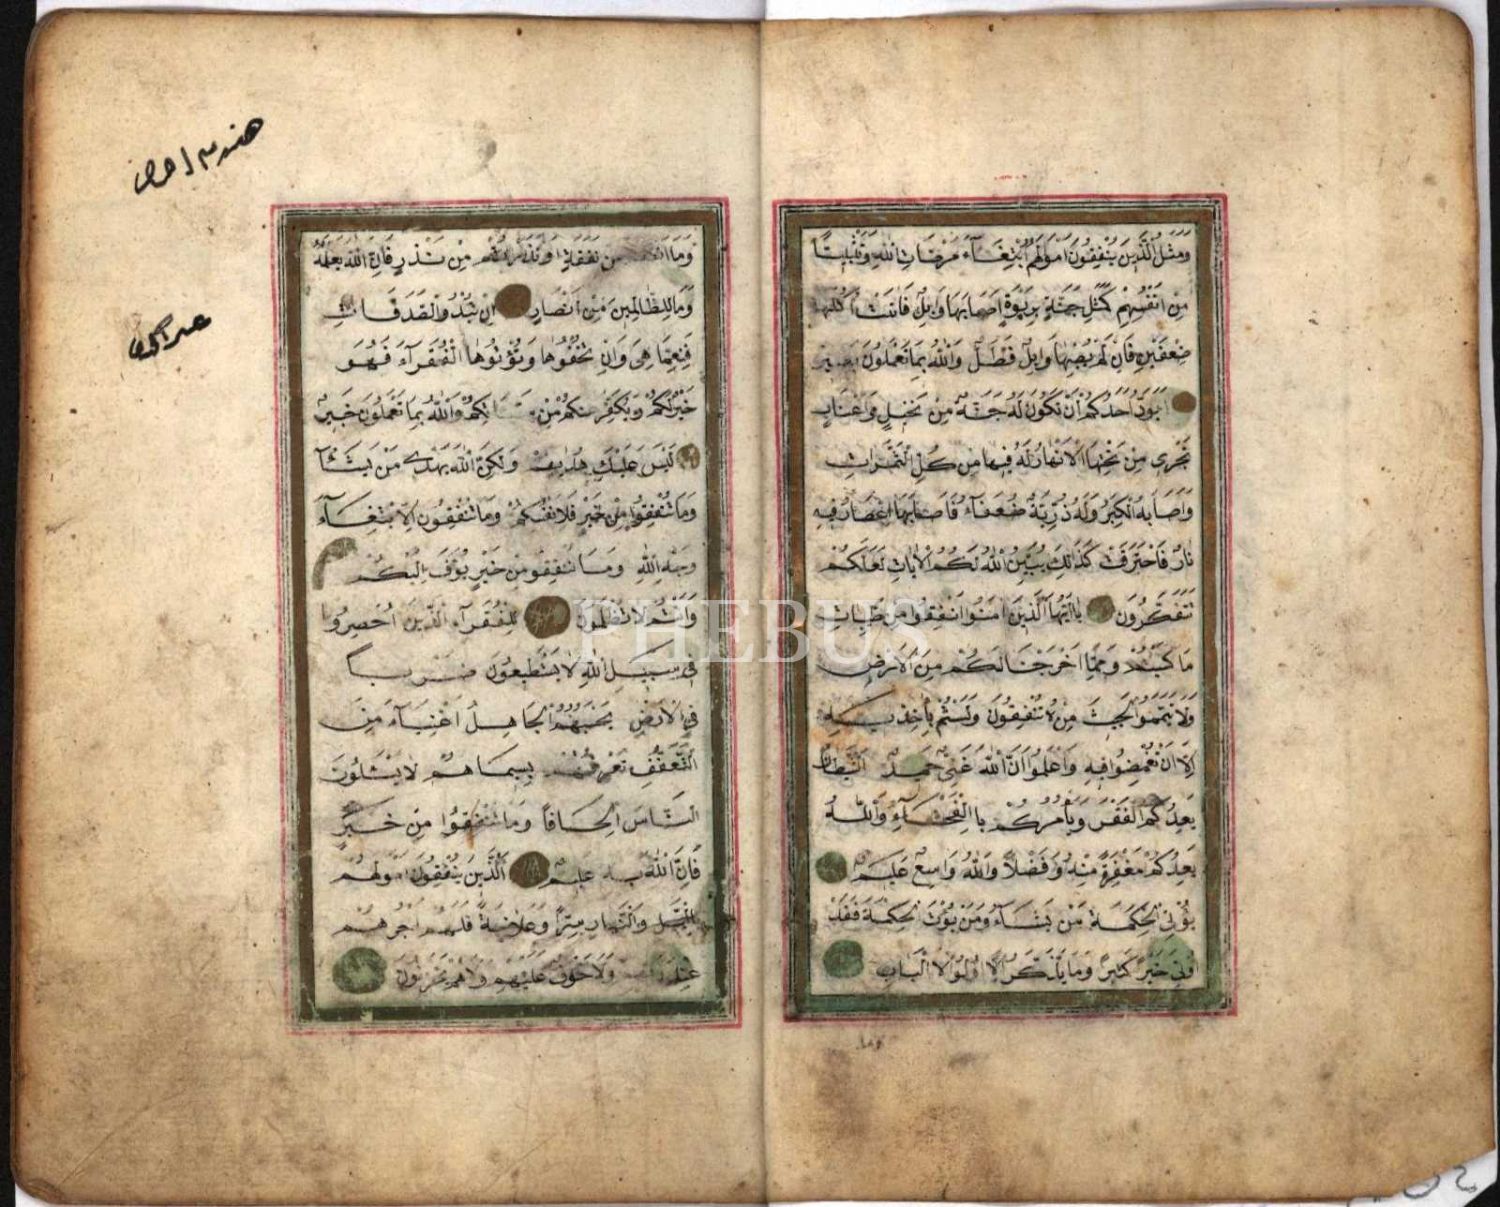 وَمَثَلُ الَّذِينَ يُنْفِقُونَ اَمْوَالَهُمُ ابْتِغَآءَ مَرْضَاتِ اللّٰهِ وَتَثْبِيتًا
مِنْ اَنْفُسِهِمْ كَمَثَلِ جَنَّةٍ بِرَبْوَةٍ اَصَابَهَا وَابِلٌ فَاٰتَتْ اُكُلَهَا
ضِعْفَيْنِ فَاِنْ لَمْ يُصِبْهَا وَابِلٌ فَطَلٌّ وَاللّٰهُ بِمَا تَعْمَلُونَ بَصِيرٌ
اَيَوَدُّ اَحَدُكُمْ اَنْ تَكُونَ لَهُ جَنَّةٌ مِنْ نَخِيلٍ وَاَعْنَابٍ
تَجْرِى مِنْ تَحْتِهَا الْاَنْهَارُ لَهُ فِيهَا مِنْ كُلِّ الثَّمَرَاتِ
وَاَصَابَهُ الْكِبَرُ وَلَهُ ذُرِّيَّةٌ ضُعَفَآءُ فَاَصَابَهَا اِعْصَارٌ فِيهِ
نَارٌ فَاحْتَرَقَتْ كَذٰلِكَ يُبَيِّنُ اللّٰهُ لَكُمُ الْاٰيَاتِ لَعَلَّكُمْ
تَتَفَكَّرُونَ يَاۤ اَيُّهَا الَّذِينَ اٰمَنُوا اَنْفِقُوا مِنْ طَيِّبَاتِ
مَا كَسَبْتُمْ وَمِمَّا اَخْرَجْنَا لَكُمْ مِنَ الْاَرْضِ
وَلَا تَيَمَّمُوا الْخَبِيثَ مِنْهُ تُنْفِقُونَ وَلَسْتُمْ بِاٰخِذِيهِ
اِلَّا اَنْ تُغْمِضُوا فِيهِ وَاعْلَمُوا اَنَّ اللّٰهَ غَنِىٌّ حَمِيدٌ اَلشَّيْطَانُ
يَعِدُكُمُ الْفَقْرَ وَيَأْمُرُكُمْ بِالْفَحْشَآءِ وَاللّٰهُ
يَعِدُكُمْ مَغْفِرَةً مِنْهُ وَفَضْلًا وَاللّٰهُ وَاسِعٌ عَلِيمٌ
يُؤْتِى الْحِكْمَةَ مَنْ يَشَآءُ وَمَنْ يُؤْتَ الْحِكْمَةَ فَقَدْ
اُوتِىَ خَيْرًا كَثِيرًا وَمَا يَذَّكَّرُ اِلَّا اُولُوا الْاَلْبَابِ
وما
وَمَا اَنْفَقْتُمْ مِنْ نَفَقَةٍ اَوْ نَذَرْتُمْ مِنْ نَذْرٍ فَاِنَّ اللّٰهَ يَعْلَمُهُ
وَمَا لِلظَّالِمِينَ مِنْ اَنْصَارٍ اِنْ تُبْدُوا الصَّدَقَاتِ
فَنِعِمَّا هِىَ وَاِنْ تُخْفُوهَا وَتُؤْتُوهَا الْفُقَرَآءَ فَهُوَ
خَيْرٌ لَكُمْ وَيُكَفِّرُ عَنْكُمْ مِنْ سَيِّـَٔاتِكُمْ وَاللّٰهُ بِمَا تَعْمَلُونَ خَبِيرٌ
لَيْسَ عَلَيْكَ هُدٰيهُمْ وَلٰكِنَّ اللّٰهَ يَهْدِى مَنْ يَشَآءُ
وَمَا تُنْفِقُوا مِنْ خَيْرٍ فَلِاَنْفُسِكُمْ وَمَا تُنْفِقُونَ اِلَّا ابْتِغَآءَ
وَجْهِ اللّٰهِ وَمَا تُنْفِقُوا مِنْ خَيْرٍ يُوَفَّ اِلَيْكُمْ
وَاَنْتُمْ لَا تُظْلَمُونَ لِلْفُقَرَآءِ الَّذِينَ اُحْصِرُوا
فِى سَبِيلِ اللّٰهِ لَا يَسْتَطِيعُونَ ضَرْبًا
فِى الْاَرْضِ يَحْسَبُهُمُ الْجَاهِلُ اَغْنِيَآءَ مِنَ
التَّعَفُّفِ تَعْرِفُهُمْ بِسِيمَاهُمْ لَا يَسْئَلُونَ
النَّاسَ اِلْحَافًا وَمَا تُنْفِقُوا مِنْ خَيْرٍ
فَاِنَّ اللّٰهَ بِهِ عَلِيمٌ اَلَّذِينَ يُنْفِقُونَ اَمْوَالَهُمْ
بِالَّيْلِ وَالنَّهَارِ سِرًّا وَعَلَانِيَةً فَلَهُمْ اَجْرُهُمْ
عِنْدَ رَبِّهِمْ وَلَا خَوْفٌ عَلَيْهِمْ وَلَا هُمْ يَحْزَنُونَ
PHEBUS